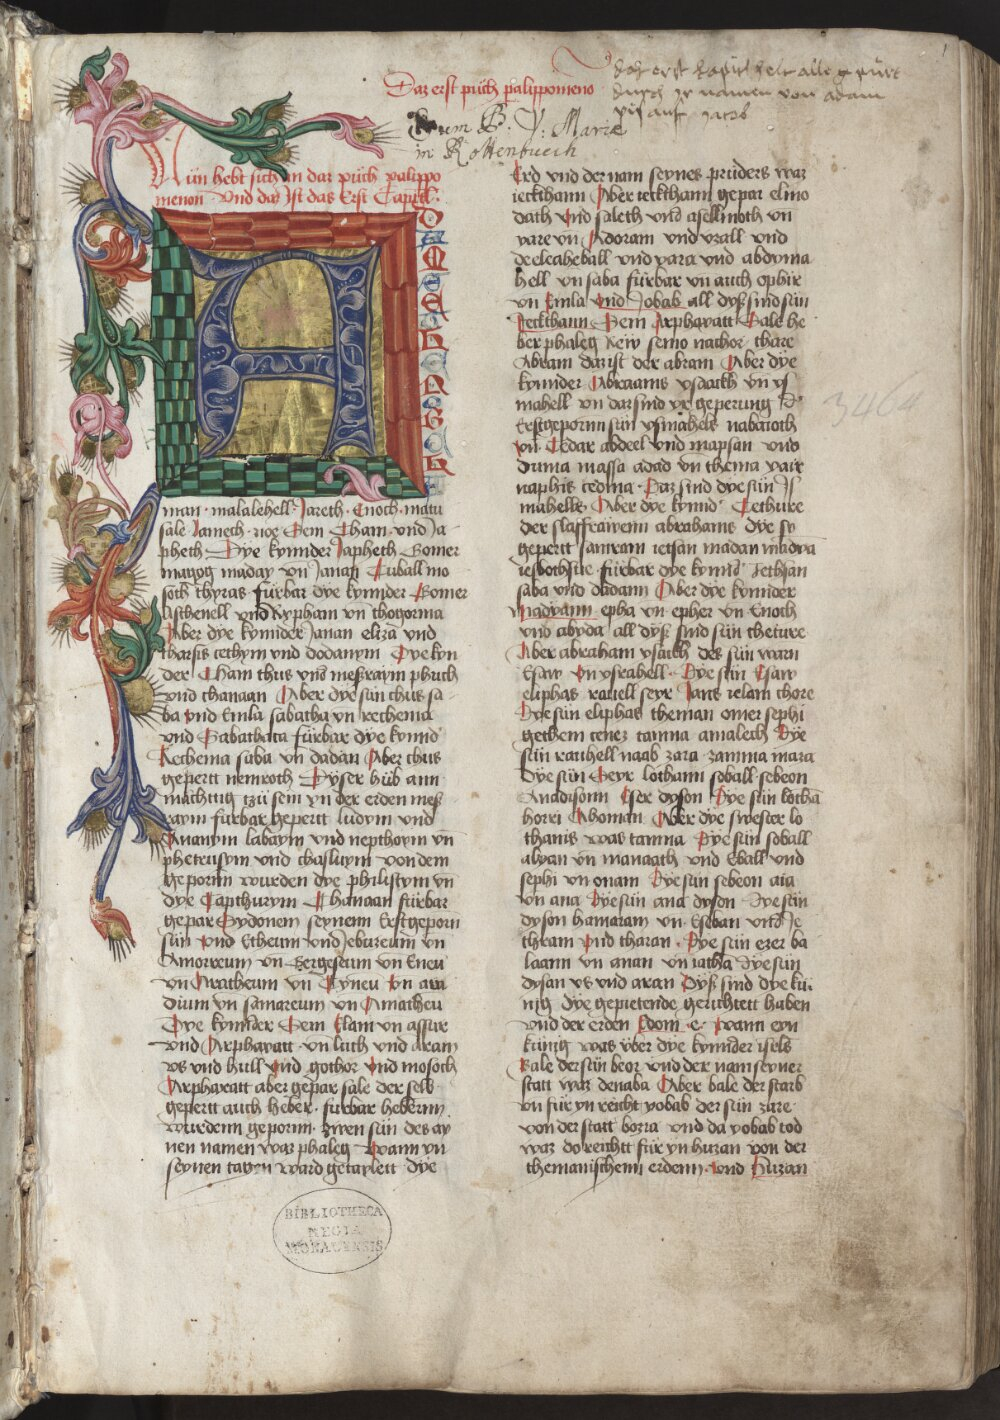 1
Daz erst püch palippomeno
daz erst kapitel helt alle gepürt
durch ir namen von adam
piß auf Jacob
Num B. V: Mariæ
in Rottenbuech
Nün hebt sich an daz püch palippo
menon Vnd daz Ist das Erst Capitel:
A
D
A
M
S
E
T
H
E
N
O
S
C
H
man · malalehell · Jareth · Enoch · matu
sale Lamech · noe Sem Cham · vnd Ja
pheth · Dye kynnder Japheth Gomer
magog maday vn̄ Janan Tuball mo
soch thyras · fürbar dye kynnder · Gomer
Aschenell vnd Rypham vn̄ thogorma
Aber dye kynnder Janan eliza vnd
tharsis cethym vnd dodanym Dye kyn
der Cham thus vnd meßraym phuth
vnd chanaan Aber dye sün chus sa
ba vnd Emla sabatha vn̄ rechema
vnd Sabathata fürbar dye kynnd̕
Rechema saba vn̄ dadan Aber thus
gepertt nemroth Dyser hüb ann
mächtig tzü sein yn der erden meß
raym fürbar gepertt ludym vnd
Ananym labaym vnd nepthoym vn̄
phetrusym vnd chasluym von dem
gepornn wurden dye philistym vn̄
dye Capthurym Chanaan fürbar
gepar Sydonem seynenn Erstgeporn
sün vnd Etheum vnd Jebuzeum vn̄
Amorreum vn̄ Gergeseum vn̄ Eneu
vn̄ Aratheum vn̄ Cyneu vn̄ ara
dium vn̄ samareum vn̄ Amatheu
Dye kynnder Sem Elam vn̄ assur
vnd Arphaxatt vn̄ luth vnd aram
vs vnd hull vnd gothor vnd mosoch
Arphaxatt aber gepar sale der selb
gepertt auch heber · fürbar heberinn
wurdenn geporn̄ · zwen sün des ay
nen namen waz phaleg Wann yn
seynen tagen ward getaylett dye
Erd vnd der nam seynes prüders waz
iecktham̄ Aber iecktham̄ gepar elmo
dath vnd saleth vnd aselmoth vn̄
yare vn̄ Adoram vnd vzall vnd
decleaheball vnd yara vnd abdyma
hell vn̄ saba fürbar vn̄ auch ophir
vn̄ Emla vnd Jobab all dyß sind sün
Jeckthann Sem Arphaxatt Sale he
ber phaleg Rew serno nachor · thare
Abram daz ist der abram Aber dye
kynnder Abraams ysaackh vn̄ ys
mahell vn̄ daz sind yr geperung d̕
Erstgepornn sün ysmahels nabaioth
vn̄ Cedar abdeel vnd mapsan vnd
duma massa adad vn̄ thema yair
naphis cedma · Daz sind dye sün Is
mahells · Aber dye kynnd̕ Cethure
der slaffraivenn abrahams dye sy
gepertt samram ietsan madan madya
iesbothsue · fürbar dye kynnd̕ Jethsan
saba vnd dadann Aber dye kynnder
Madyann epha vn̄ epher vn̄ Enoch
vnd abyda all dyß sind sün theture
Aber abraham ysackh des sün warn
Esaw vn̄ ysrahell · Dye sün Esaw
eliphas rauell seyr Jaus ielam chore
Dye sün eliphas theman omer sephi
gethem cenez tamna amalech Dye
sün rauhell naab zara · zamma maza
Dye sün Seyr Lothann soball · sebeon
Anadisonn Eser dyson Dye sün lothan̄
horrei Ahoman Aber dye swester lo
thanis was tamna Dye sün soball
alyan vn̄ manaath vnd Eball vnd
sephi vn̄ onam Dye sün sebeon aia
vn̄ ana Dye sün ana dyson Dye sün
dyson hamaram vn̄ Eseban vnd Je
thram vnd tharan · Dye sün ezer ba
laann vn̄ anan vn̄ iacha Dye sün
dysan vs vnd aran Dyß sind dye kü
nig dye gepietende gerichtett haben
vnd der erden Edom e Wann eyn
künig was über dye kynnder isr̄els
Bale der sün beor vnd der nam seyner
statt waz denaba Aber bale der starb
vn̄ für yn reicht yobab der sün zare
von der statt bozra vnd da yobab tod
waz do reichtt für yn huzan von der
themanischenn erdenn · vnd Huzan
3464
BIBLIOTHECA
REGIA
MONACENSIS